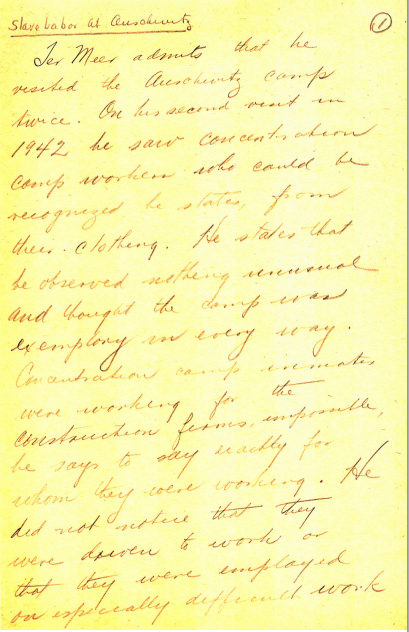 Slave labor at Auschwitz
1
Ter Meer admits that he
visited the Auschwitz camp
twice. On his second visit in
1942 he saw concentration
camp workers who could be
recognized he states, from
their clothing. He states that
he observed nothing unusual
and thought the camp was
exemplory in every way.
Concentration camp inmates
were working for the
construction firms, impossible,
he says to say exactly for
whom they were working. He
did not notice that they
were driven to work or
that they were employed
on especially difficult work